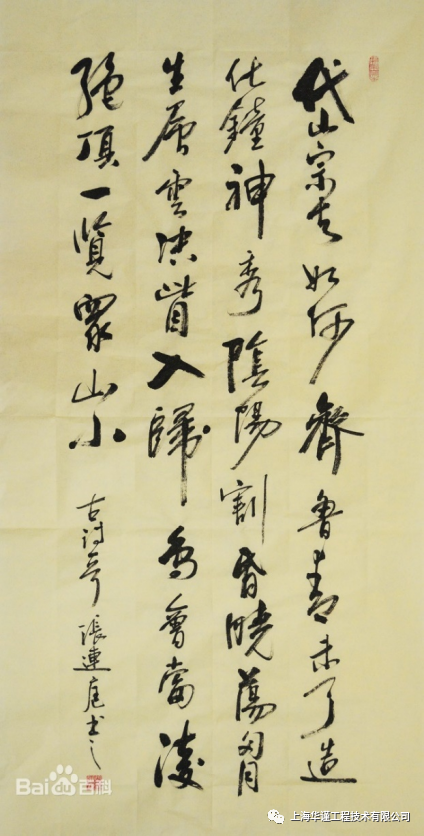 岱宗夫如何齊魯青未了造
化鐘神秀陰陽割昏曉蕩胸
生層雲决眥入歸鳥會當凌
絶頂一覽眾山小
古诗 張連庭书之
Bai百科
上海华谨工程技术有限公司